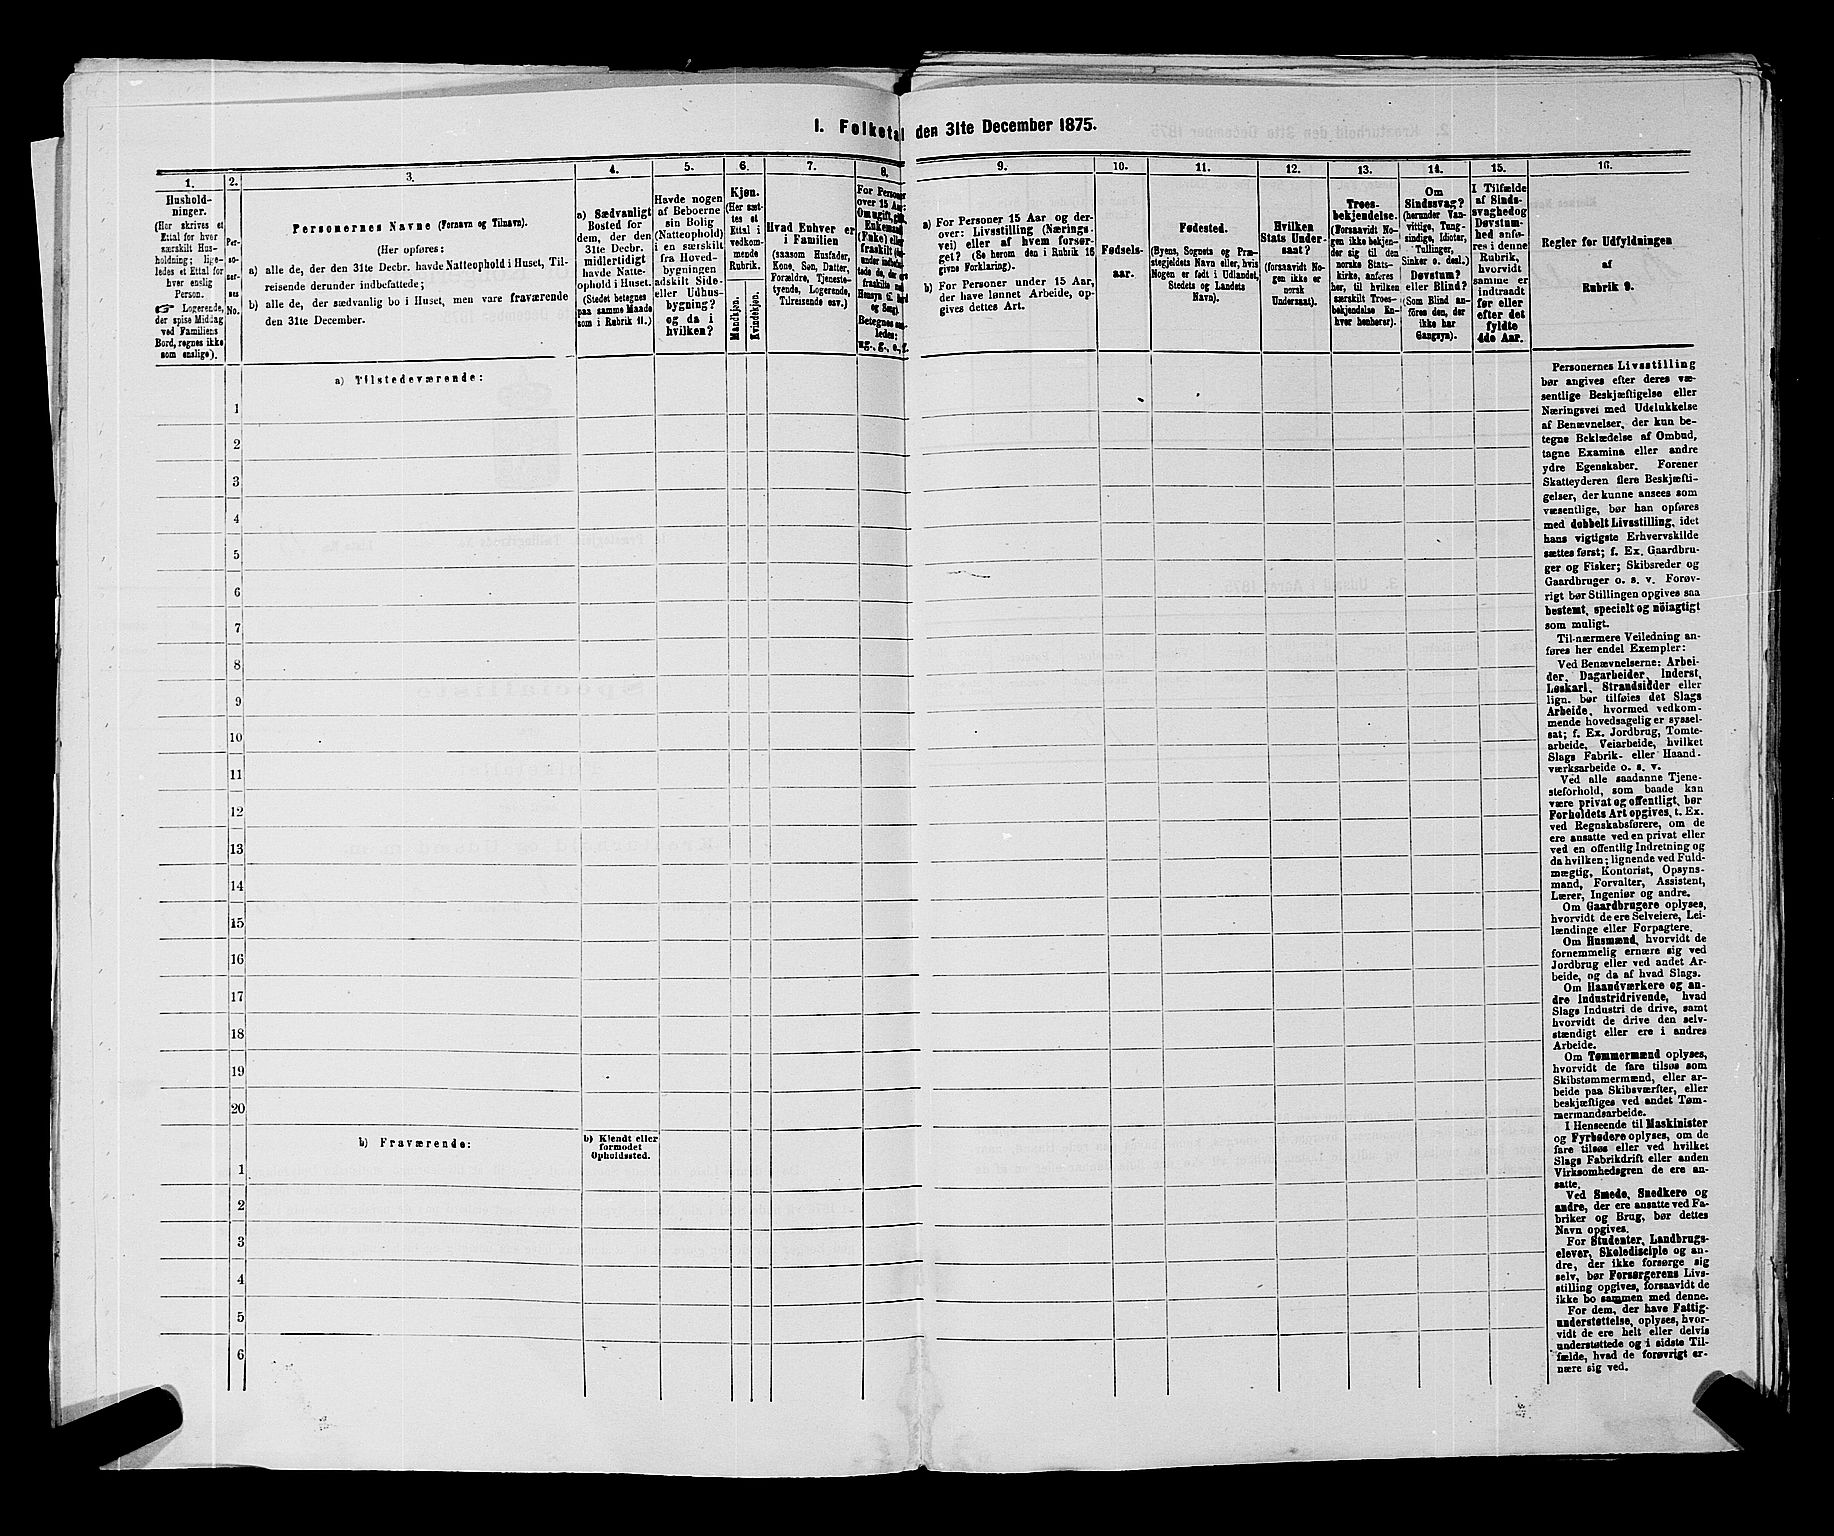 I. Folketal den 31te December 1875.
1.
Hushold-
ninger.
(Her skrives et
Ettal for hver
særskilt Hus-
holdning; lige-
ledes et Ettal for
hver enslig
Person.
Logerende,
der spise Middag
ved Familiens
Bord, regnes ikke
som enslige).
2.
Per-
so-
ner-
nes
No.
3.
Personernes Navne (Fornavn og Tilnavn).
(Her opføres:
a) alle de, der den 31te Decbr. havde Natteophold i Huset, Til-
reisende derunder indbefattede;
b) alle de, der sædvanlig bo i Huset, men vare fraværende
den 31te December.
4.
a) Sædvanligt
Bosted for
dem, der den
31te Decbr.
midlertidigt
havde Natte-
ophold i Huset.
(Stedet betegnes
paa samme Maade
som i Rubrik 11.)
5.
Havde nogen
af Beboerne
sin Bolig
(Natteophold)
i en særskilt
fra Hoved-
bygningen
adskilt Side-
eller Udhus-
bygning?
og da i
hvilken?
6.
Kjøn.
(Her sæt-
tes et
Ettal i
vedkom-
mende
Rubrik.
Mandkjøn.
Kvindekjøn.
7.
Hvad Enhver er
i Familien
(saasom Husfader,
Kone, Søn, Datter,
Forældre, Tjeneste-
tyende, Logerende,
Tilreisende osv.)
8.
For Personer
over 15 Aar:
Om ugift, gift,
Enkemand
(Enke) eller
fraskilt
Betegnes
ledes:
ug., g., e., f.
9.
a) For Personer 15 Aar og der-
over: Livsstilling (Nærings-
vei) eller af hvem forsør-
get? (Se herom den i Rubrik 16
givne Forklaring).
b) For Personer under 15 Aar,
der have lønnet Arbeide, op-
gives dettes Art.
10.
Fødsels-
aar.
11.
Fødested.
(Byens, Sognets og Præ-
stegjeldets Navn eller, hvis
Nogen er født i Udlandet,
Stedets og Landets
Navn).
12.
Hvilken
Stats Under-
saat?
(forsaavidt No-
gen ikke er
norsk
Undersaat).
13.
Troes-
bekjendelse.
(Forsaavidt No-
gen ikke bekjen-
der sig til den
norske Stats-
kirke, anføres
her, til hvilken
særskilt Troes-
bekjendelse En-
hver henhører).
14.
Om
Sindssvag?
(herunder Van-
vittige, Tung-
sindige, Idioter,
Tullinger,
Sinker o. desl.)
Døvstum?
eller Blind?
(Som Blind an-
føres den, der
ikke har
Gangsyn).
15.
I Tilfælde
af Sinds-
svaghed og
Døvstum-
hed anfø-
res i denne
Rubrik,
hvorvidt
samme er
indtraadt
før eller
efter det
fyldte
4de Aar.
16.
Regler for Udfyldningen
af
Rubrik 9.
a) Tilstedeværende:
1
2
3
4
5
6
7
8
9
10
11
12
13
14
15
16
17
18
19
20
b) Fraværende:
b) Kjendt eller
formodet
Opholdssted.
1
2
3
4
5
6
Personernes Livsstilling
bør angives efter deres væ-
sentlige Beskjæftigelse eller
Næringsvei med Udelukkelse
af Benævnelser, der kun be-
tegne Beklædelse af Ombud,
tagne Examina eller andre
ydre Egenskaber. Forener
Skatteyderen flere Beskjæfti-
gelser, der kunne ansees som
væsentlige, bør han opføres
med dobbelt Livsstilling, idet
hans vigtigste Erhvervskilde
sættes først; f. Ex. Gaardbru-
ger og Fisker; Skibsreder og
Gaardbruger o. s. v. Forøv-
rigt bør Stillingen opgives saa
bestemt, specielt og nöiagtigt
som muligt.
Til nærmere Veiledning an-
føres her endel Exempler:
Ved Benævnelserne: Arbei-
der, Dagarbeider, Inderst,
Løskarl, Strandsidder eller
lign. bør tilføies det Slags
Arbeide, hvormed vedkom-
mende hovedsagelig er syssel-
sat; f. Ex. Jordbrug, Tomte-
arbeide, Veiarbeide, hvilket
Slags Fabrik- eller Haand-
værksarbeide o. s. v.
Ved alle saadanne Tjene-
steforhold, som baade kan
være privat og offentligt, bør
Forholdets Art opgives, t. Ex.
ved Regnskabsførere, om de
ere ansatte ved en privat eller
ved en offentlig Indretning og
da hvilken; lignende ved Fuld-
mægtig, Kontorist, Opsyns-
mand, Forvalter, Assistent,
Lærer, Ingeniør og andre.
Om Gaardbrugere oplyses,
hvorvidt de ere Selveiere, Lei-
lændinge eller Forpagtere.
Om Husmænd, hvorvidt de
fornemmelig ernære sig ved
Jordbrug eller ved andet Ar-
beide, og da af hvad Slags.
Om Haandværkere og an-
dre Industridrivende, hvad
Slags Industri de drive, samt
hvorvidt de drive den selv-
stændigt eller ere i andres
Arbeide.
Om Tømmermænd oplyses,
hvorvidt de fare tilsøs som
Skibstømmermænd, eller ar-
beide paa Skibsværfter, eller
beskjæftiges ved andet Tøm-
mermandsarbeide.
I Henseende til Maskinister
og Fyrbødere oplyses, om de
fare tilsøs eller ved hvilket
Slags Fabrikdrift eller anden
Virksomhedsgren de ere an-
satte.
Ved Smede, Snedkere og
andre, der ere ansatte ved Fa-
briker og Brug, bør dettes
Navn opgives.
For Studenter, Landbrugs-
elever, Skoledisciple og an-
dre, der ikke forsørge sig
selv, bør Forsørgerens Livs-
stilling opgives, forsaavidt de
ikke bo sammen med denne.
For dem, der have Fattig-
understøttelse, oplyses, hvor-
vidt de ere helt eller delvis
understøttede og i sidste Til-
fælde, hvad de forøvrigt er-
nære sig ved.